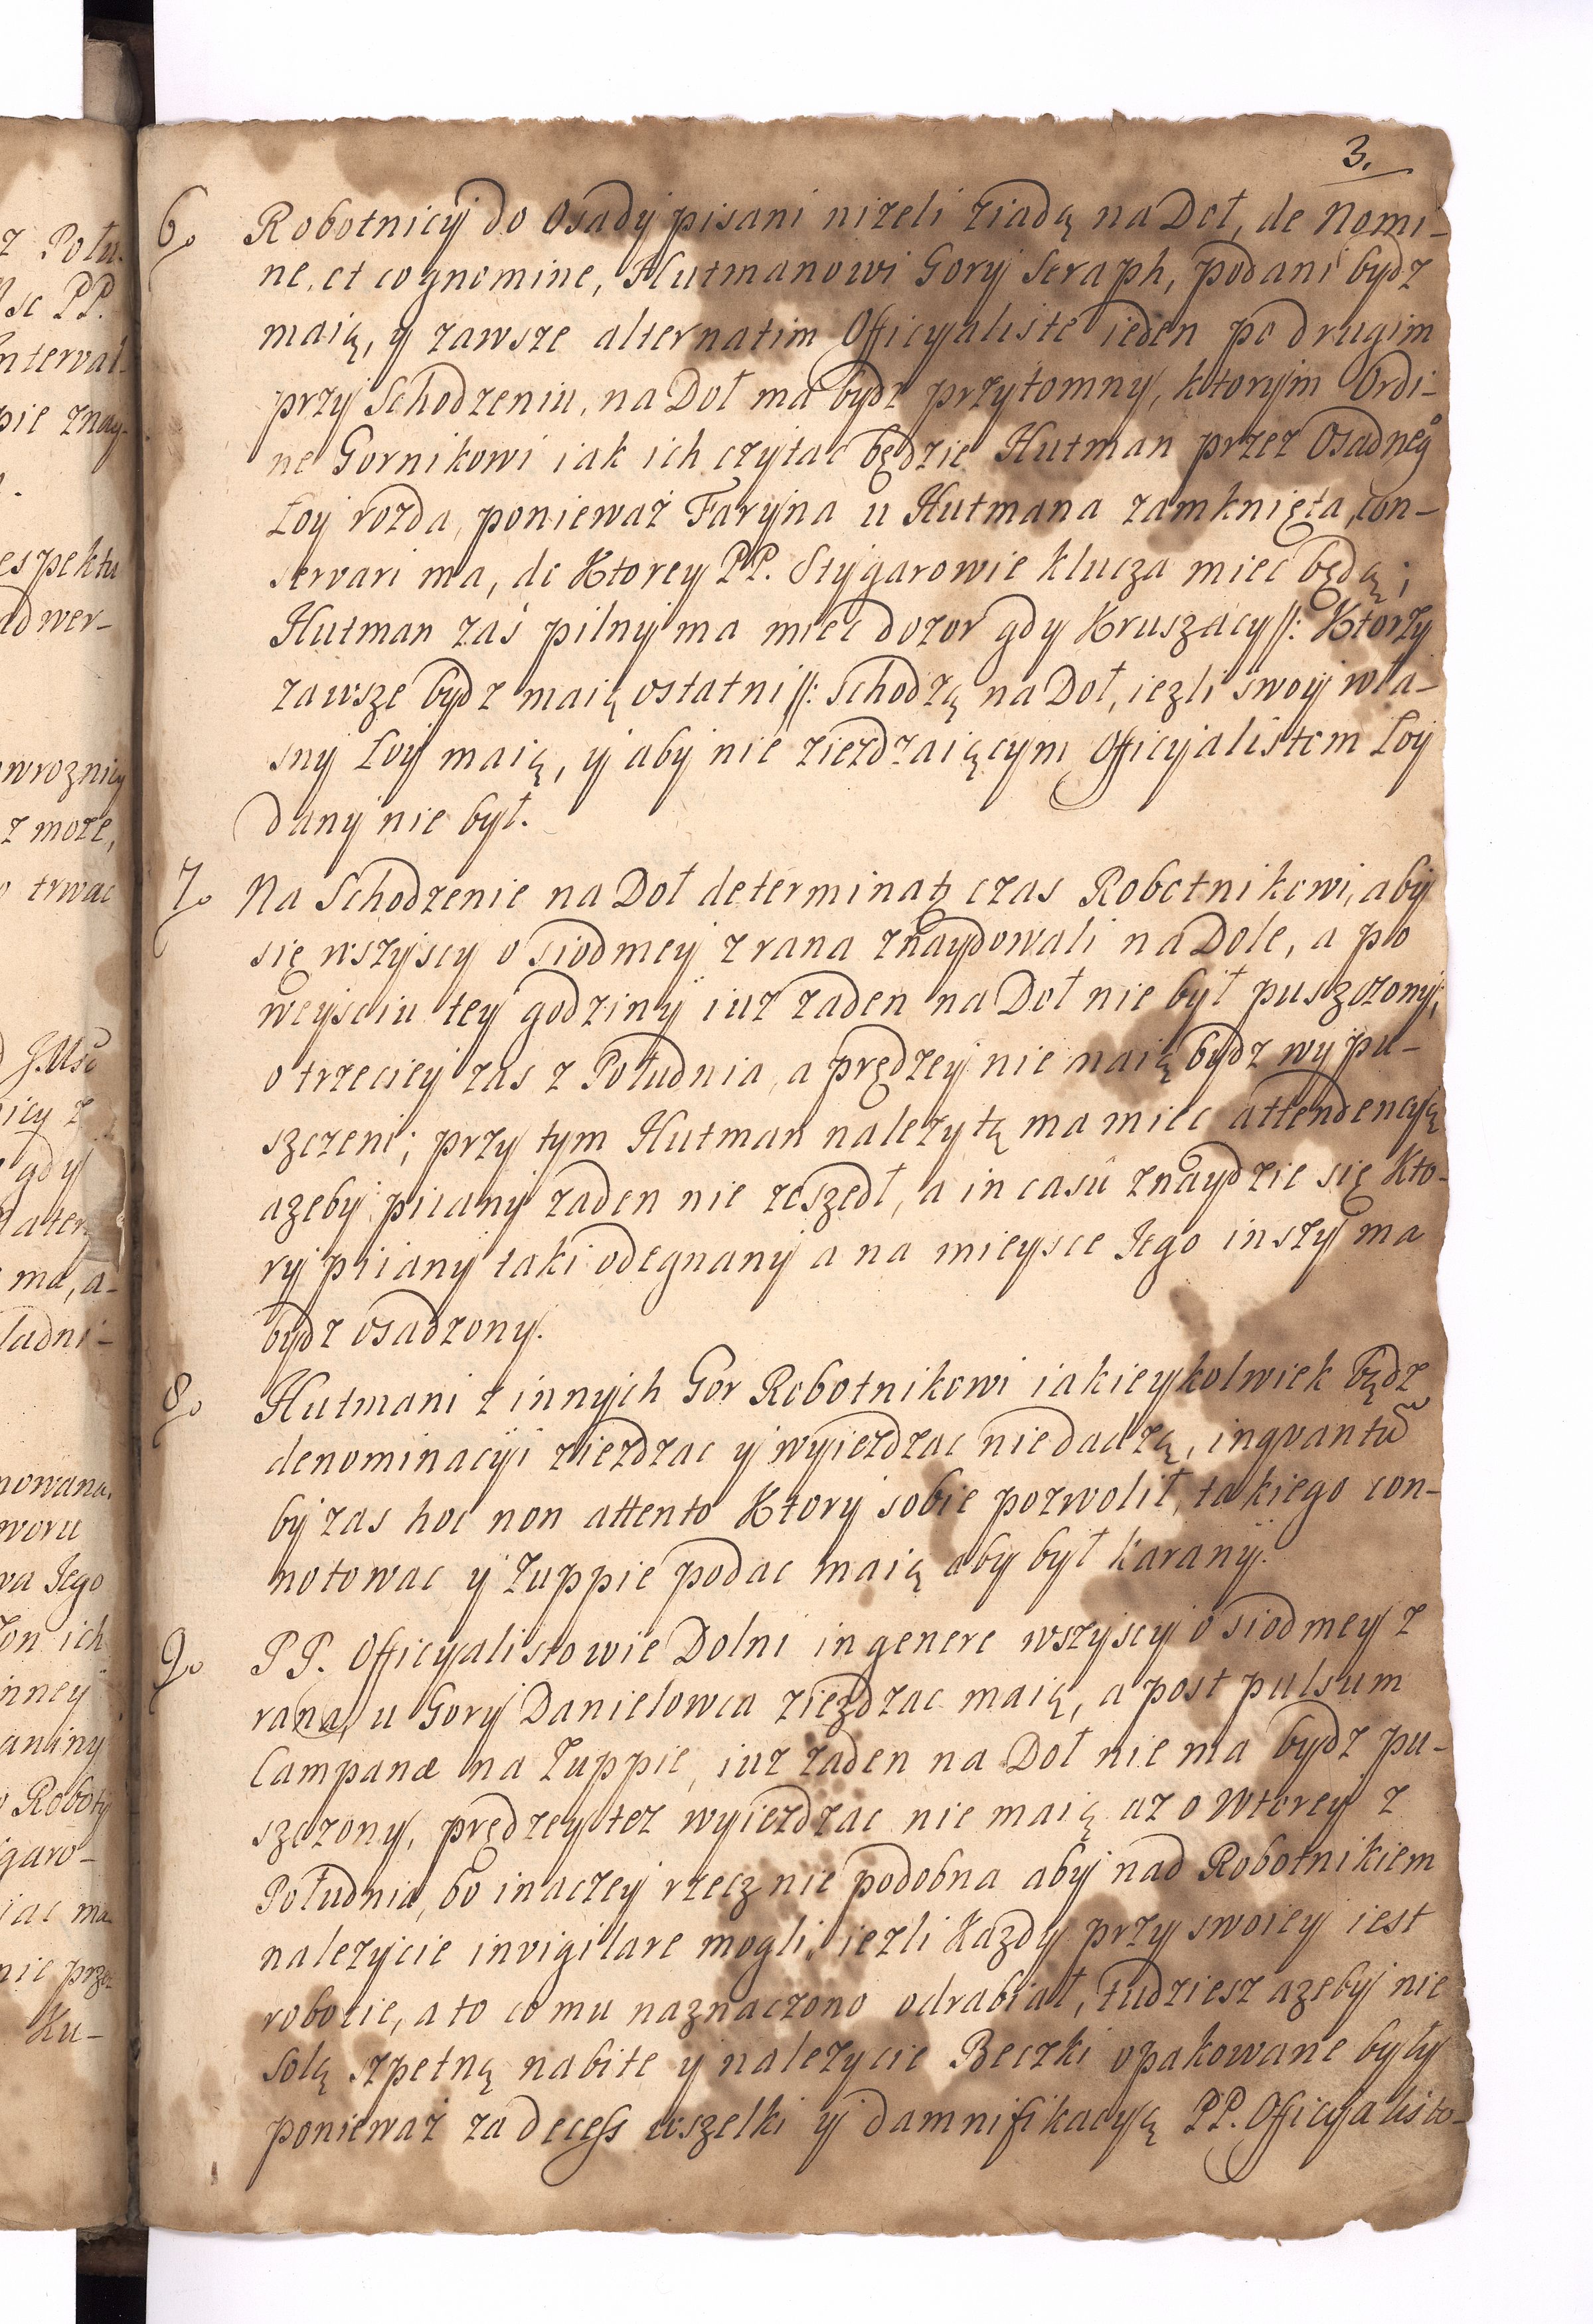 3.
6o Robotnicy do Osady pisani nizeli ziadą na Doł, de Nomi-
ne, et cognomine, Hutmanowi Gory Seraph, podani bydz
maią, y zawsze alternatim Officyaliste ieden po drugim
przy Schodzeniu, na Doł ma bydz przytomny, ktorym Ordi-
ne Gornikowi iak ich czytac będzie Hutman przez Osadnego
Łoy rozda, ponieważ Faryna u Hutmana zamknięta, con-
servari ma, do Ktorey PP. Stygarowie klucza miec będą;
Hutman zaś pilny ma miec dozor gdy Kruszacy //: Ktorzy
zawsze bydz maią ostatni //: Schodzą na Doł, iezli swoy wła-
sny Łoy maią, y aby nie ziezdzaiącym Officyalistom Łoy
dany nie był.
7o Na Schodzenie na Doł determinatą czas Robotnikowi, aby
się wszyscy o siodmey z rana znaydowali na Dole, a po
weysciu tey godziny iuz zaden na Doł nie był puszczony;
o trzeciey zas z Południa, a prędzey nie maią bydz wypu-
szczeni; przy tym Hutman nalezytą ma miec attendencyą
azeby piiany zaden nie zszedł, a in casu znaydzie się Kto-
ry piiany taki odegnany a na mieysce Jego inszy ma
bydz osadzony.
8o Hutmani z innych Gor Robotnikowi iakieykolwiek bądz
denominacyi ziezdzac y wyiezdzac nie dadzą, inqvantũ
by zas hoc non attento Ktory sobie pozwolił, takiego con-
notowac y Zuppie podac maią aby był karany.
9o PP. Officyalistowie Dolni in genere wszyscy o siodmey z
rana, u Gory Danielowca ziezdzac maią, a post pulsum
Campanæ na Zuppie, iuz zaden na Doł nie ma bydz pu-
szczony, prędzey tez wyiezdzac nie maią az o Wtorey z
Południa, bo inaczey rzecz nie podobna aby nad Robotnikiem
nalezycie invigilare mogli, iezli Kazdy przy swoiey iest
robocie, a to co mu naznaczono odrabiał, tudziesz azeby nie
solą szpetną nabite y nalezycie Beczki opakowane były
ponieważ za decess wszelki y damnifikacyą PP. Officyalisto-